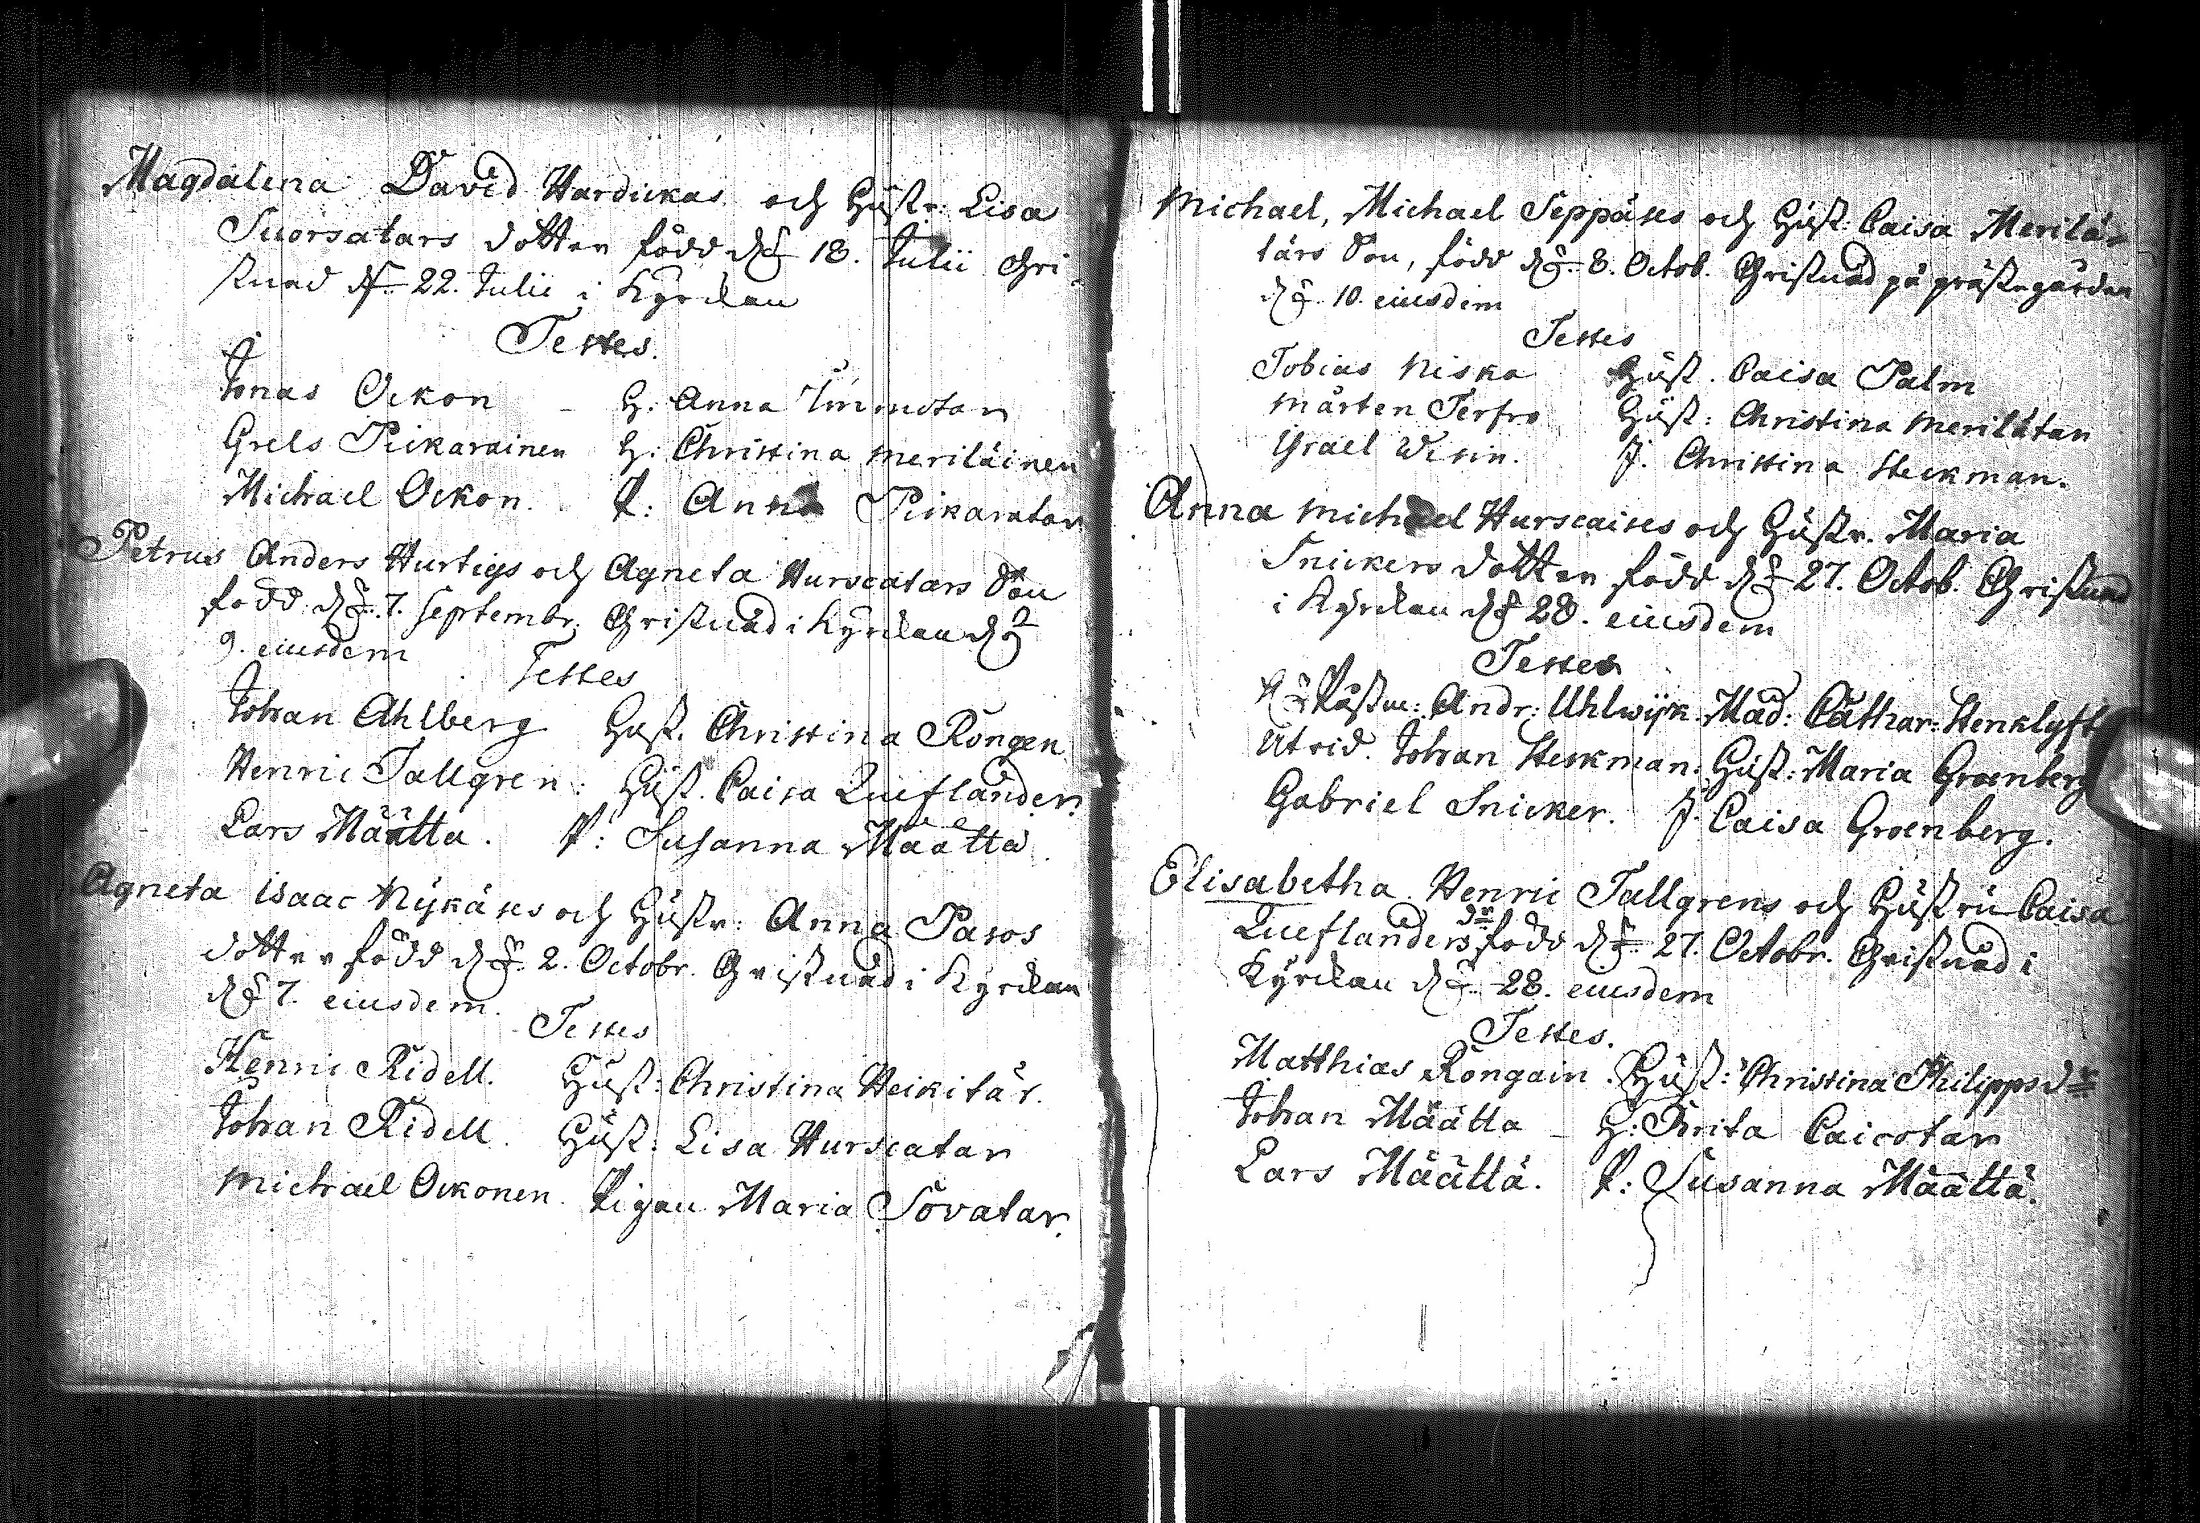 Magdalena David Hardickas och Hustr: Lisa
Suorsatars dotter född d: 18. Julii Chri-
stnad d: 22. Julii i Kyrckan
Testes.
Jonas Ockon H: Anna
Grels Pikarainen H: Christina Meriläinen
Michael Ockon. P: Anna Pikaratar
Petrus Anders Hurtigs och Agneta Hurscatars Son
född d: 7. Septembr. Christnad i Kyrckan d:
9. eiusdem Testes
Johan Ahlberg Hust. Christina Rongen
Henric Tallgren: Hust. Caisa Queflander.
Lars Määtta. P: Susanna Määttä.
Agneta Isaac Nykäses och Hustr: Anna Pasos
dotter född d: 2. Octobr. Christnad i Kyrckan
d: 7. eiusdem.
Testes
Henric Ridell. Hust: Christina Heikitär.
Johan Ridell. Hust: Lisa Hurscatar
Michael Ockonen. Pigan Maria Sovatar.
Michael, Michael Seppäses och Hust: Caisa Merilä-
tärs Son, född d: 8. Octob. Christnad på prästegården
d: 10. eiusdem
Testes
Tobias Niska Hust. Caisa Palm
Mårten Terfro Hust: Christina Merilätar
Israel Wesin. J. Christina Heckman.
Anna Michael Hurscaises och Hustr. Maria
Snickers dotter född d: 27. Octob. Christnad
i Kyrckan d: 28. eiusdem
Testes
Andr: Uhlwijk. Mad: Cathar: Henklyft
Johan Heckman. Hust: Maria Groenberg
Gabriel Snicker. J. Caisa Groenberg.
Elisabetha Henric Tallgrens och Hustru Caisa
Queflanders dr född d: 27. Octobr. Christnad i
Kyrckan d: 28. eiusdem
Testes.
Matthias Rongain. Hust: Christina Philippsdr
Johan Määtta H: Brita Caicotar
Lars Määttä. P: Susanna Määttä.